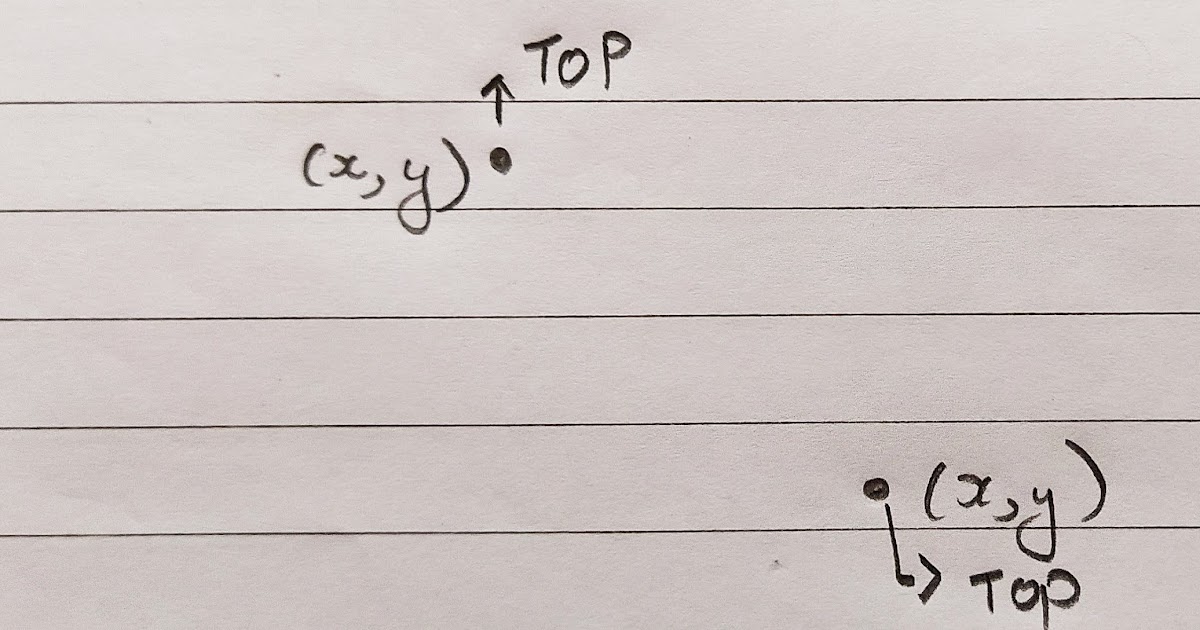 TOP
(x, y)
(x, y)
TOP